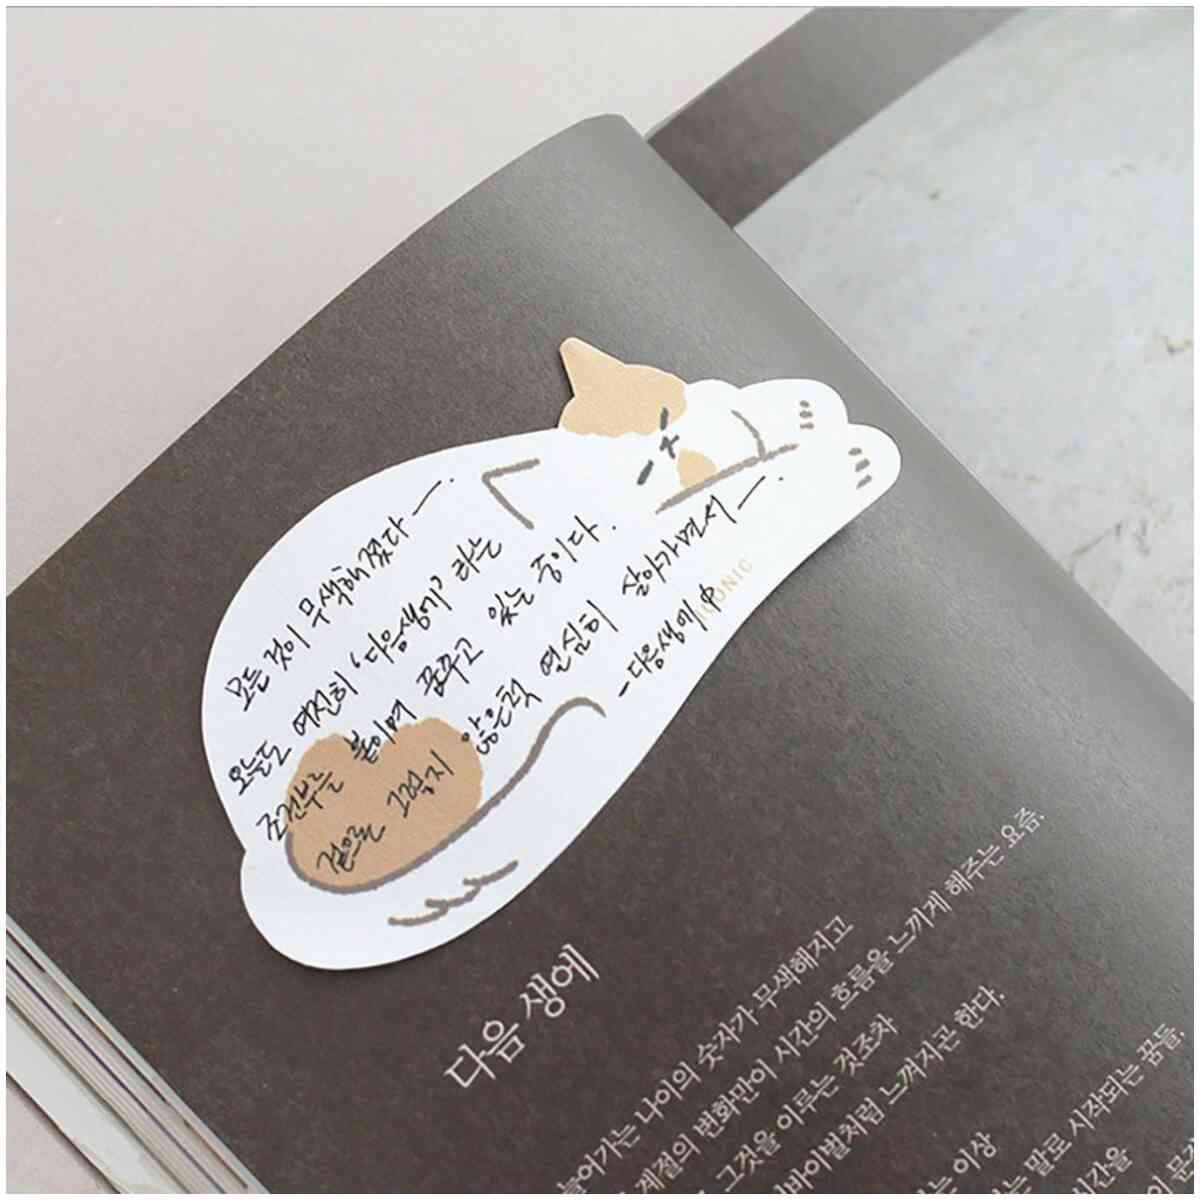 모든 것이 무색해졌다 —.
오늘도 여전히 '다음생에' 라는
조건부를 붙이며 꿈꾸고 있는 중이다.
겉으론 그렇지 않은척 열심히 살아가면서—.
-다음생에 中
ICONIC
다음 생에
늘어가는 나이의 숫자가 무색해지고
계절의 변화만이 시간의 흐름을 느끼게 해주는 요즘.
그것을 이루는 것조차
느껴지곤 한다.
이상
말로 시작되는 꿈들.